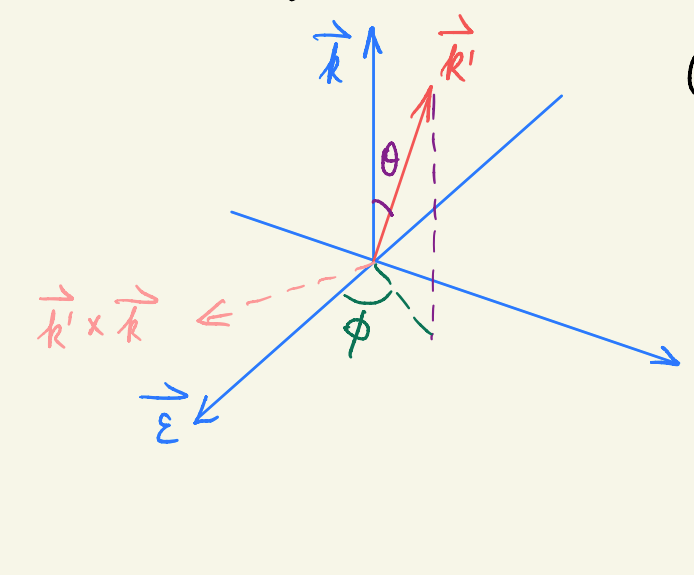 k⃗
k⃗'
θ
k⃗' × k⃗
ϕ
ε⃗